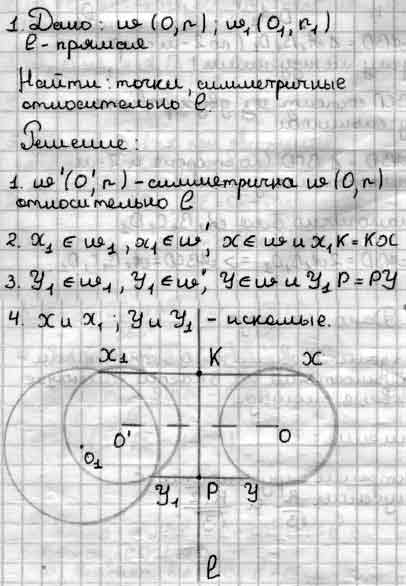 1. Дано: w(O,r); w₁(O₁,r₁)
l - прямая
Найти: точки, симметричные
относительно l.
Решение:
1. w'(O',r) - симметрична w(O,r)
относительно l
2. x₁ ∈ w₁, x₁ ∈ w', x ∈ w и x₁K = Kx
3. Y₁ ∈ w₁, Y₁ ∈ w', Y ∈ w и Y₁P = PY
4. x и x₁; Y и Y₁ - искомые.
x₁ K x
O' O
O₁
Y₁ P Y
l